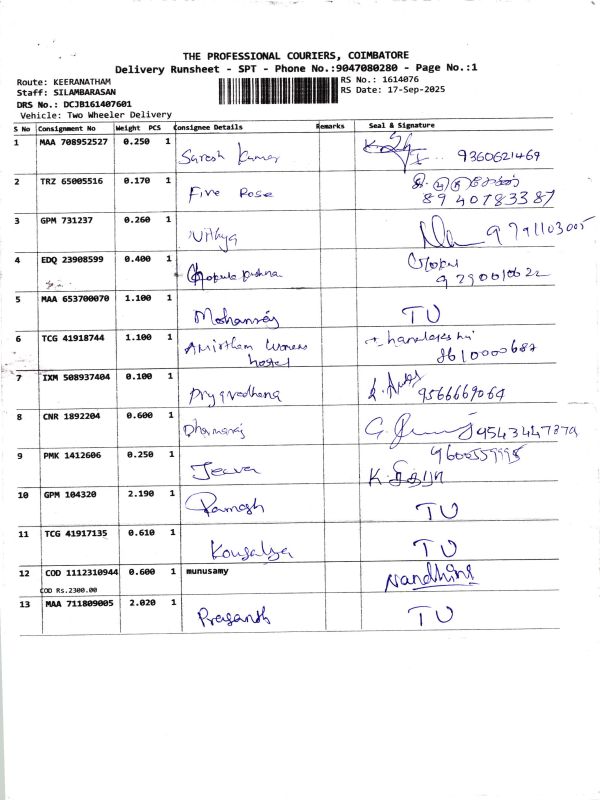 THE PROFESSIONAL COURIERS, COIMBATORE
Delivery Runsheet - SPT - Phone No.:9047080280 - Page No.:1
Route: KEERANATHAM RS No.: 1614076
Staff: SILAMBARASAN RS Date: 17-Sep-2025
DRS No.: DCJB161407601
Vehicle: Two Wheeler Delivery
S No Consignment No Weight PCS Consignee Details Remarks Seal & Signature
1 MAA 708952527 0.250 1 Suresh Kumar 9360621469
2 TRZ 65005516 0.170 1 Five Rose
8940783387
3 GPM 731237 0.260 1 Nithya 9791103005
4 EDQ 23908599 0.400 1 Gopala krishna Gokul
5 MAA 653700070 1.100 1 Mohanraj TU
6 TCG 41918744 1.100 1 Amirtham womens
hostel 8610000687
7 IXM 508937404 0.100 1 Priyavadhana 9566669064
8 CNR 1892204 0.600 1 Dharmaraj 9543447379
9 PMK 1412606 0.250 1 Jeeva 9600559995
10 GPM 104320 2.190 1 Ramesh TU
11 TCG 41917135 0.610 1 Kousalya TU
12 COD 1112310944 0.600 1 munusamy Nandhini
COD Rs.2300.00
13 MAA 711809005 2.020 1 Prasanth TU